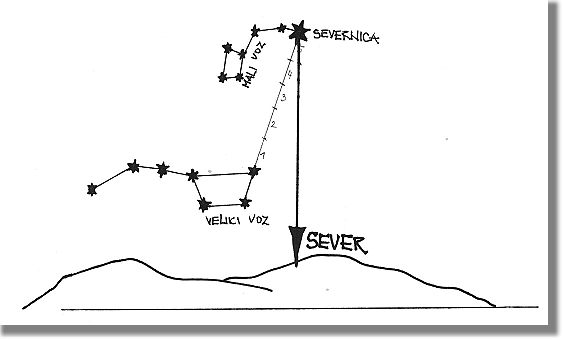 SEVERNICA
MALI VOZ
5
4
3
2
1
VELIKI VOZ
SEVER